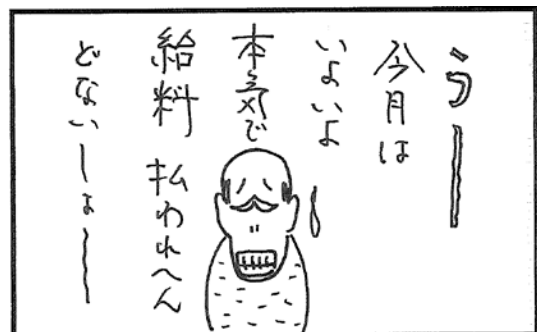 うーーー
今月は
いよいよ
本気で
給料 払われへん
どないーしょーー